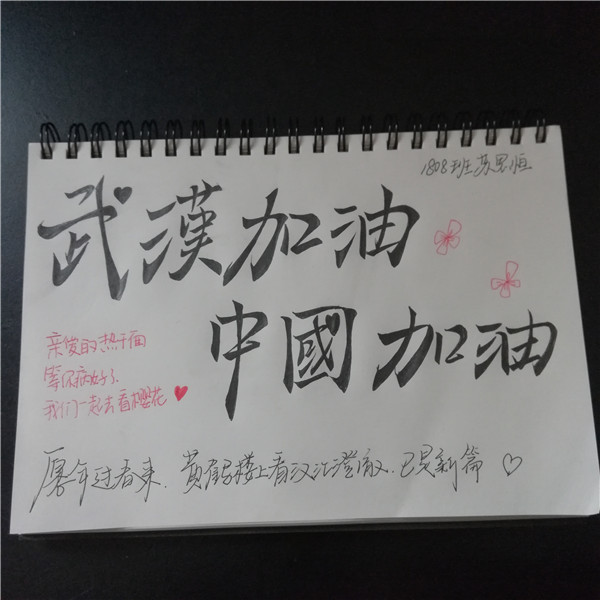 1808班苏思恒
武漢加油
中國加油
亲爱的热干面
等你病好了、
我们一起去看樱花
寒冬过春来.黄鹤楼上看汉江澄澈.已是新篇